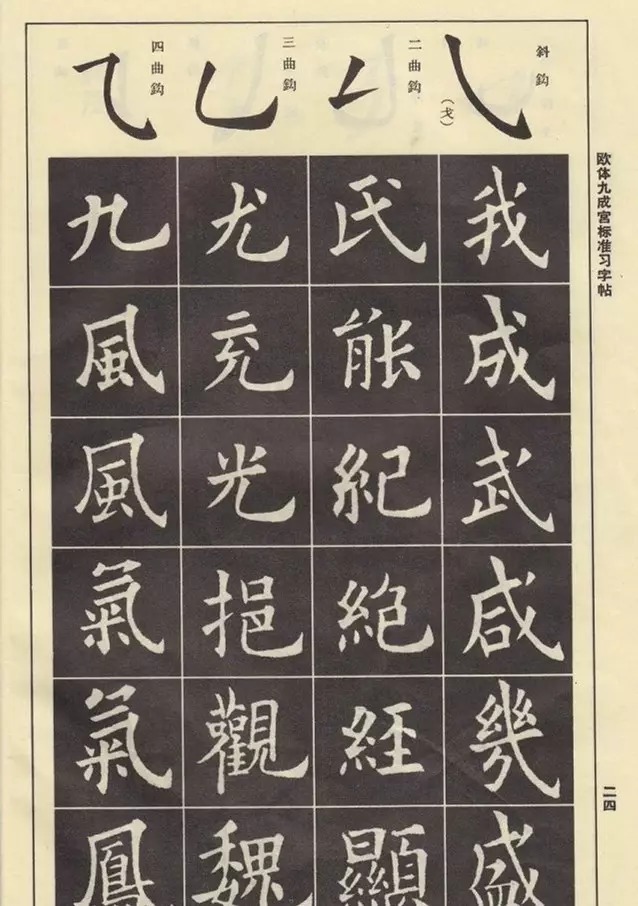 欧体九成宫标准习字帖
二四
斜鈎
（戈）
我成武咸幾盛
二曲鈎
氏能紀絕經顯
三曲鈎
尤充光挹觀魏
四曲鈎
九風風氣氣鳳